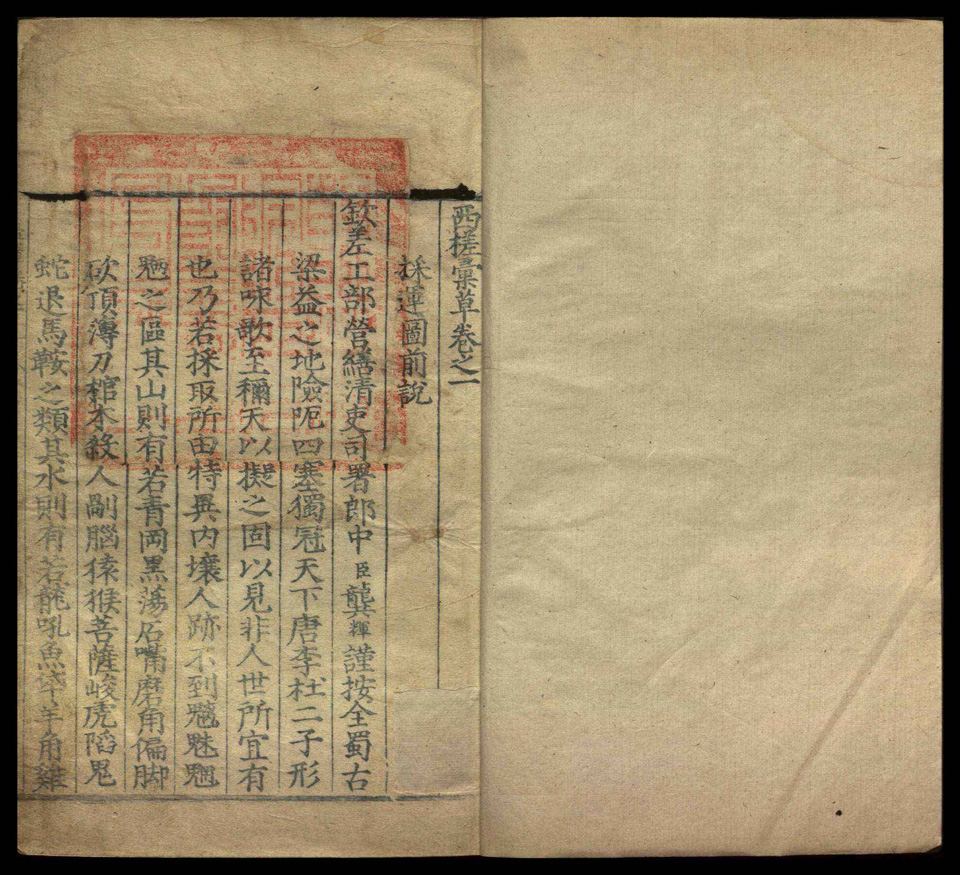 西槎彙草卷之一
採運圖前說
欽差工部營繕清吏司署郎中臣龔輝謹按全蜀古
梁益之地險阨四塞獨冠天下唐李杜二子形
諸咏歌至稱天以擬之固以見非人世所宜有
也乃若採取所由特異内壤人跡不到魑魅魍
魎之區其山則有若青岡黒蕩石嘴磨角偏脚
砍頂薄刀棺木殺人剮腦猿猴菩薩峻虎陷鬼
蛇退馬鞍之類其水則有若龍吼魚羊角雞